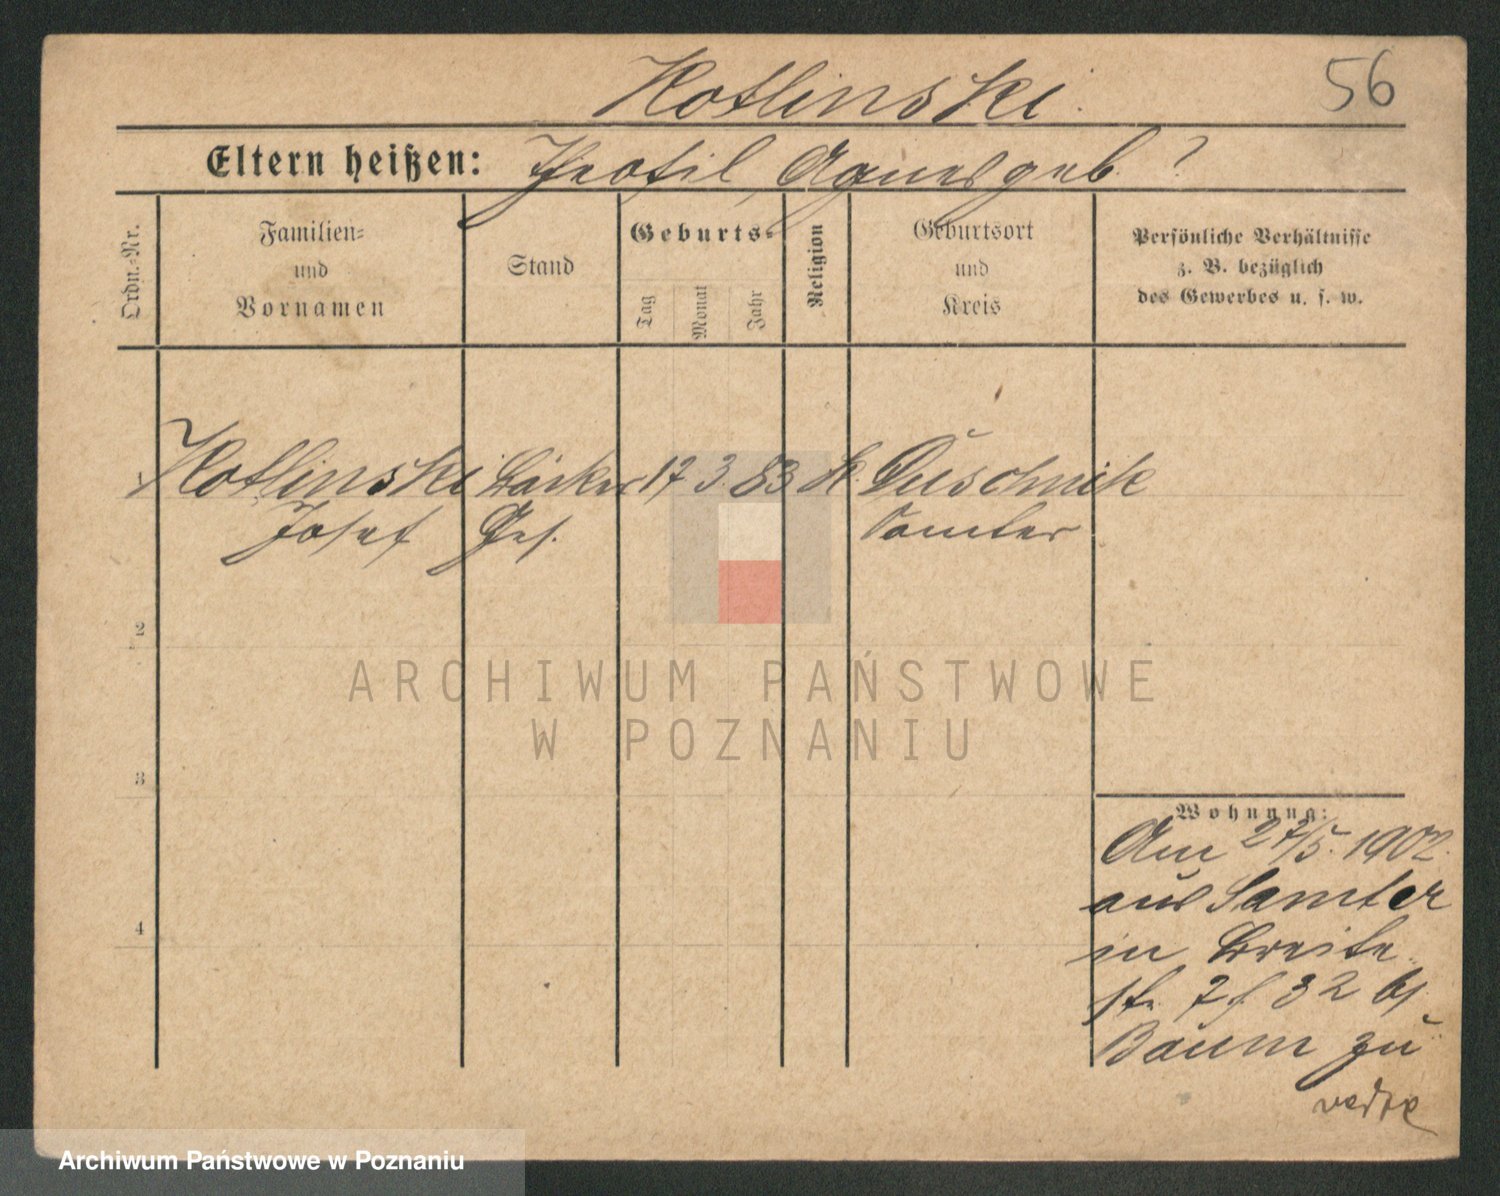 56
Kotlinski
Eltern heißen: Theofil, Agnes geb. ?
Ordn.-Nr.
Familien-
und
Vornamen
Stand
Geburts-
Tag
Monat
Jahr
Religion
Geburtsort
und
Kreis
Persönliche Verhältnisse
z. B. bezüglich
des Gewerbes u. s. w.
1 Kotlinski Bäcker 17 3 83 k. Duschnik
Josef Ges. Samter
2
3
4
Wohnung:
Am 27/5. 1902
aus Samter
in Breite
str. 7 32 bj.
Baum zu
ARCHIWUM PAŃSTWOWE
W POZNANIU
Archiwum Państwowe w Poznaniu